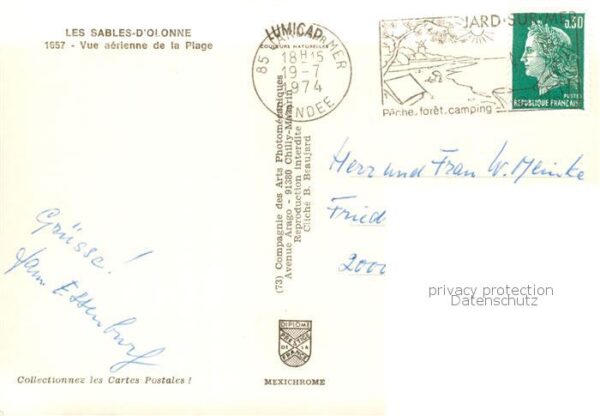 LES SABLES-D'OLONNE
1657 - Vue aérienne de la Plage
LUMICAP
COULEURS NATURELLES
85 JARD-SUR-MER
18H15
19-7
1974
VENDEE
JARD-SUR-MER
Pêche, forêt, camping
0,30
POSTES
REPUBLIQUE FRANÇAISE
(73) Compagnie des Arts Photomécaniques
Avenue Arago - 91380 Chilly-Mazarin
Reproduction interdite
Cliché B. Beaujard
Herr und Frau W. Meinke
Fried
2000
privacy protection
Datenschutz
Grüsse!
Ham Essenburg
DIPLOME
PRESTIGE
DE LA
FRANCE
Collectionnez les Cartes Postales !
MEXICHROME